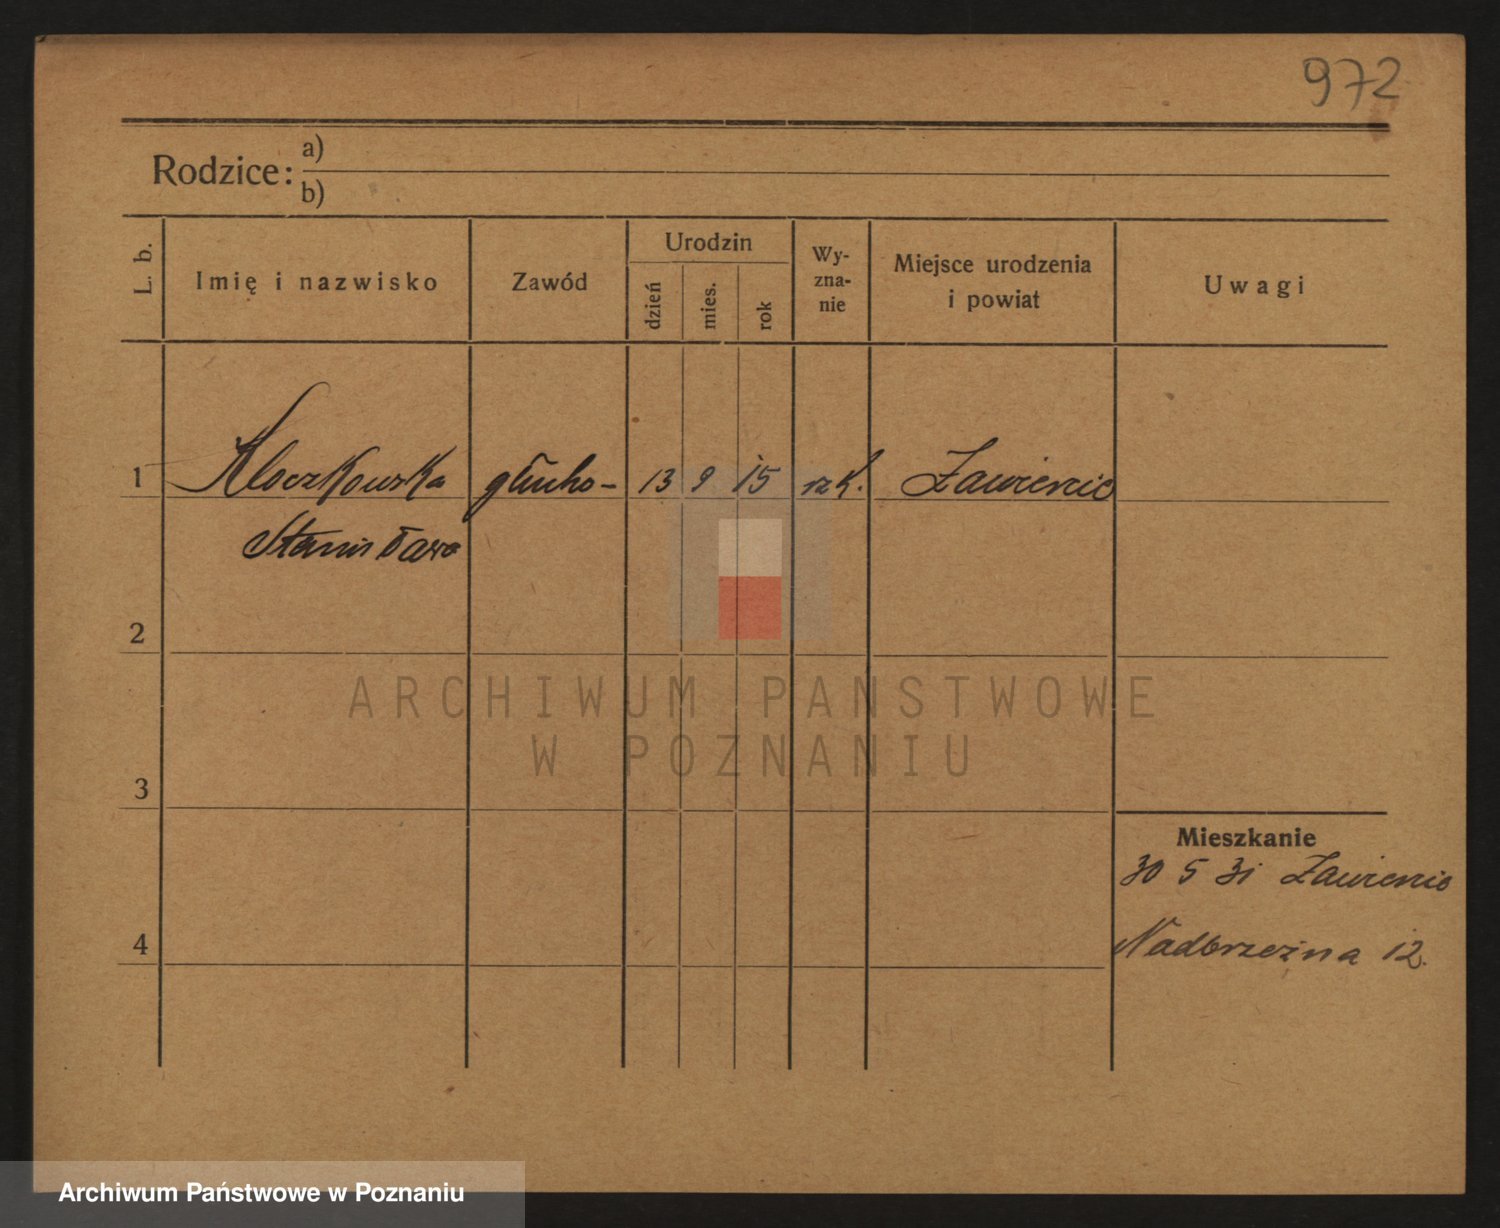 972
Rodzice: a)
b)
L. b. Imię i nazwisko Zawód Urodzin dzień mies. rok Wy-zna-nie Miejsce urodzenia i powiat Uwagi
1 Kloczkowska głucho- 13 9 15 rzk. Zawiercie
Stanisława
2
ARCHIWUM PANSTWOWE
W POZNANIU
3
Mieszkanie
30 5 31 Zawiercie
4 Nadbrzeżna 12.
Archiwum Państwowe w Poznaniu